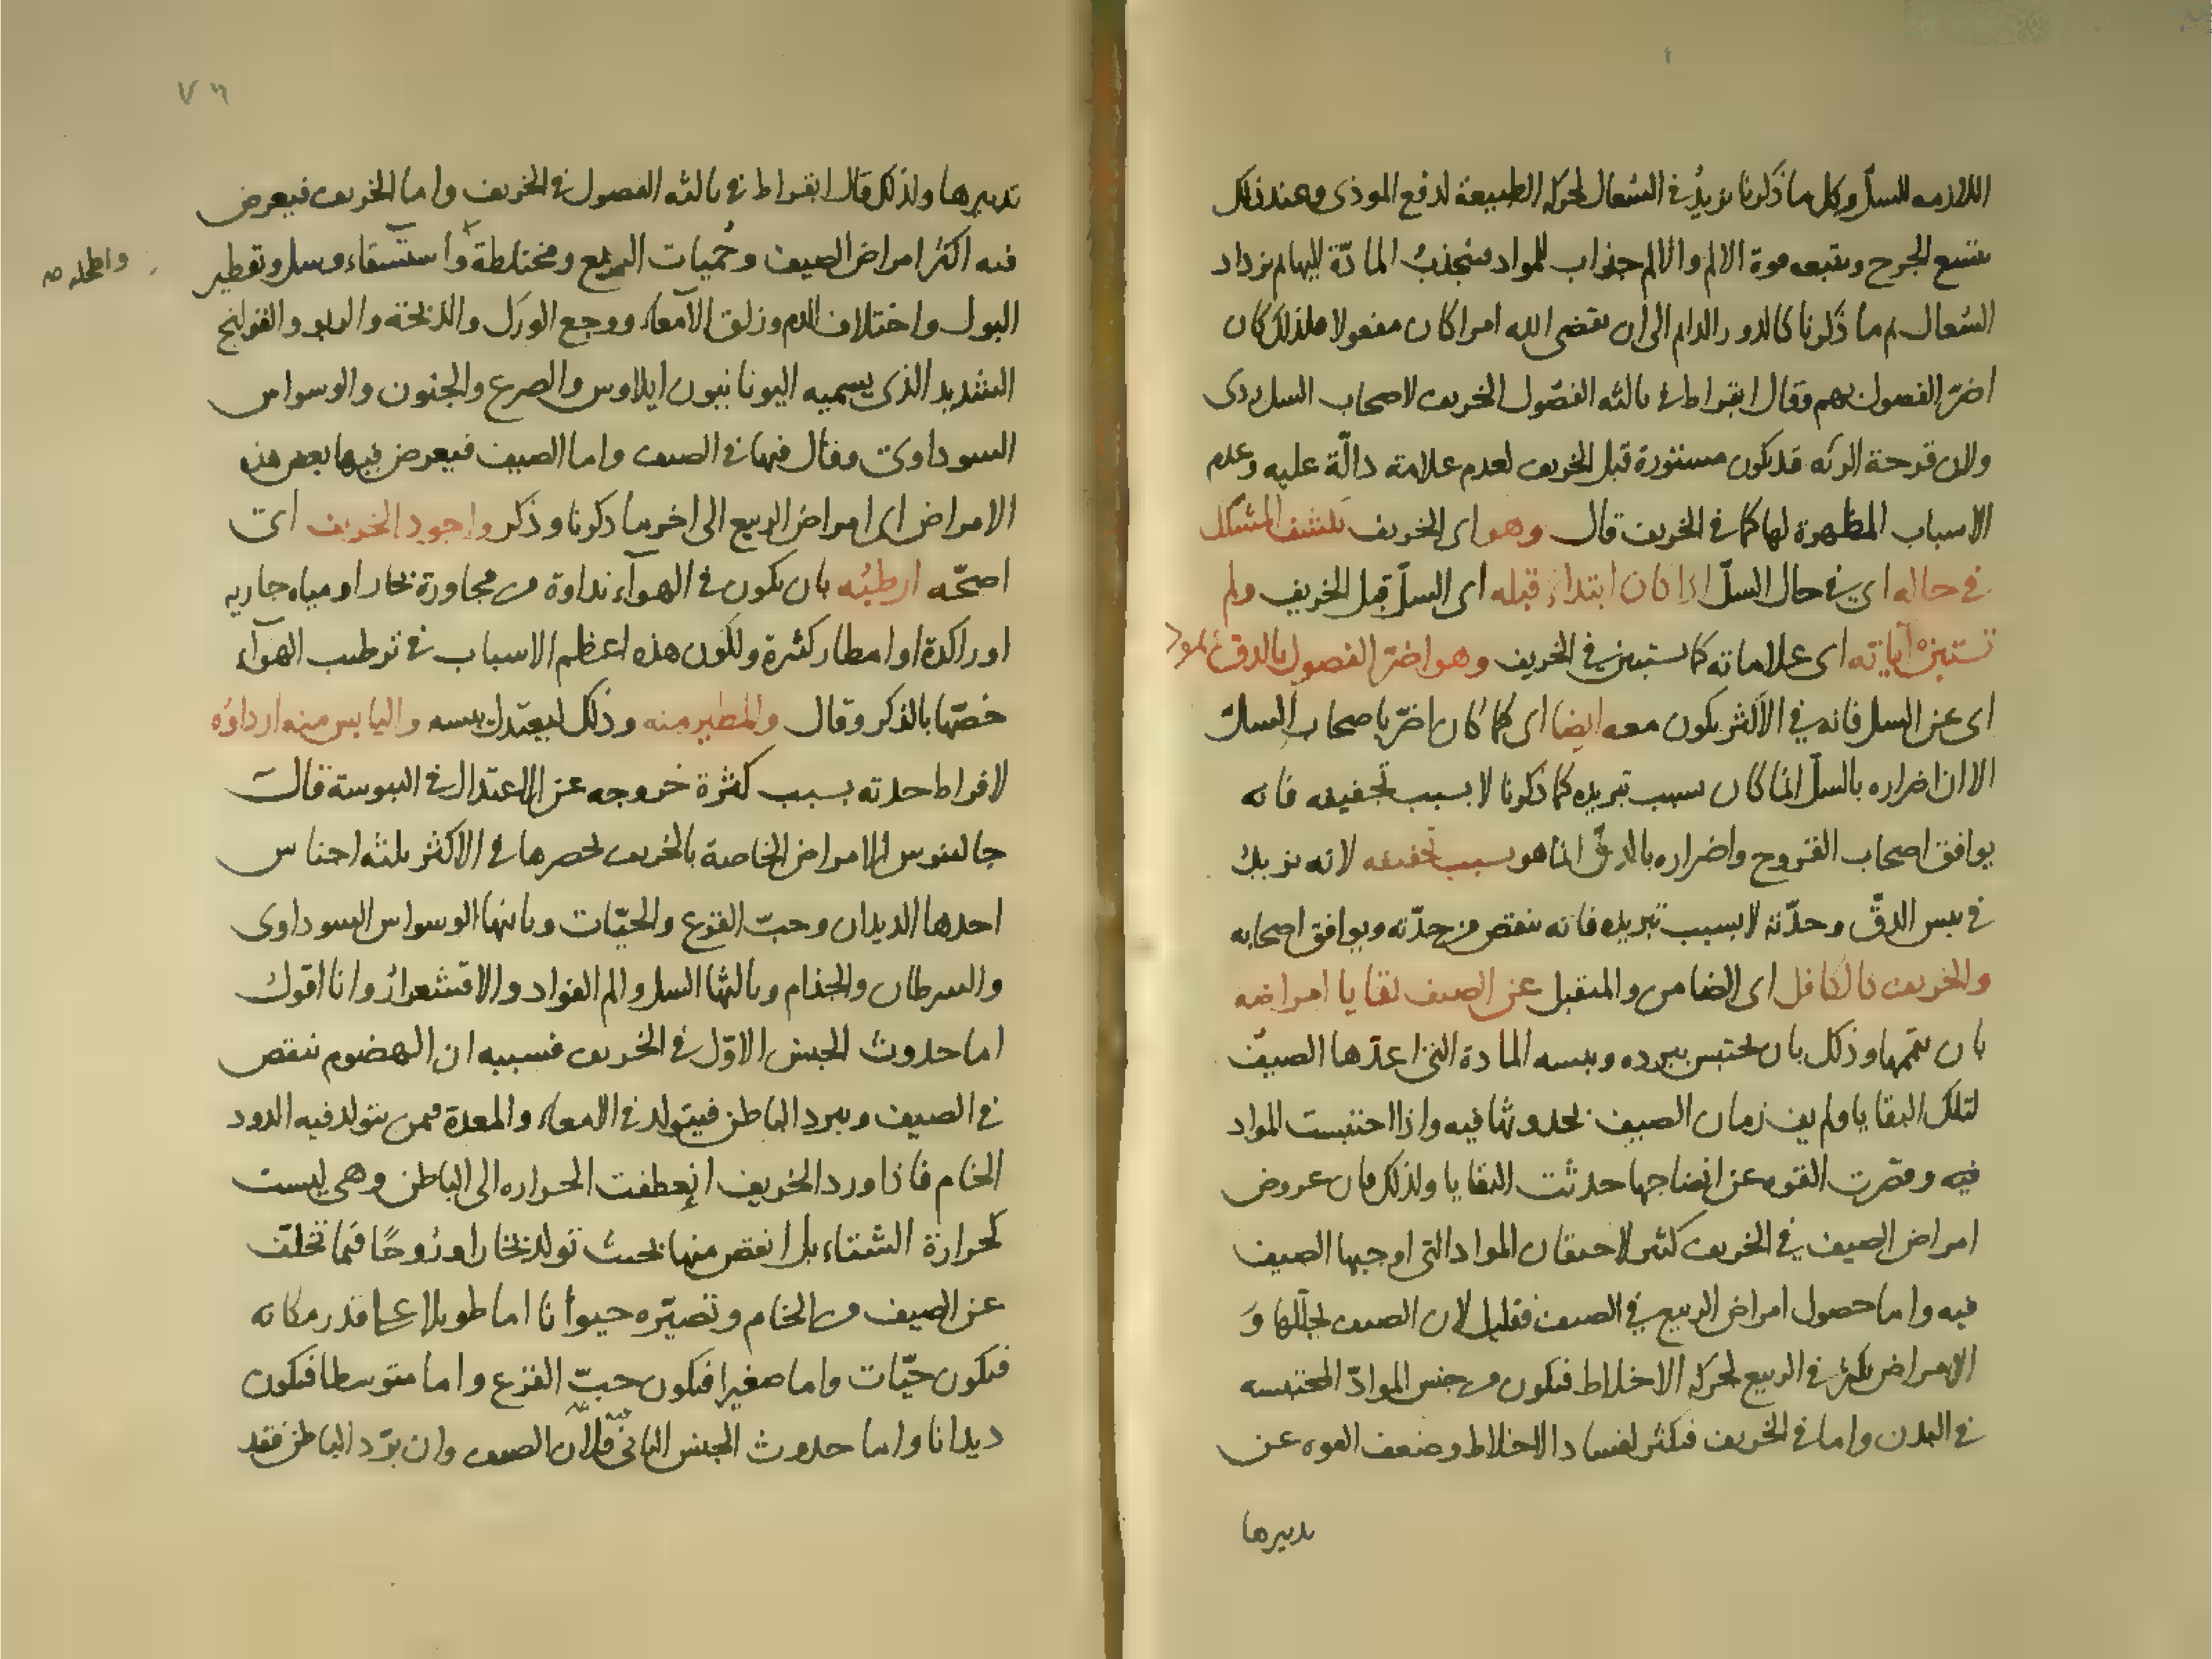 اللازمه للسل وكل ما ذكرنا يزيد في السعال لحركة الطبيعة لدفع الموذى وعند ذلك
يتسع الجرح ويتبعه قوة الالم والالم جذاب للمواد فينجذب المادة اليها ثم يزداد
السعال ثم ما ذكرنا كالدور الدايم الى ان يقضى الله امرا كان مفعولا فلذلك كان
اضر الفصول بهم وقال ابقراط في ثالثه الفصول الخريف لاصحاب السل ردى
ولان قرحة الرئه قد تكون مستورة قبل الخريف لعدم علامة دالة عليه وعدم
الاسباب المظهرة لها كما في الخريف قال وهو اى الخريف يكشف المشكل
في حاله اى في حال السل اذا كان ابتداؤه قبله اى السل قبل الخريف ولم
تستبن اياته اى علاماته كما يستبين في الخريف وهو اضر الفصول بالدق المفرد
اى عن السل فانه في الاكثر يكون معه ايضا اى كما كان اضر باصحاب السل
الا ان اضراره بالسل انما كان بسبب تبريده كما ذكرنا لا بسبب تجفيفه فانه
يوافق اصحاب القروح واضراره بالدق انما هو بسبب تجفيفه لانه يزيد
في يبس الدق وحدته لا بسبب تبريده فانه ينقص من حدته ويوافق اصحابه
والخريف كالكافل اى الضامن والمتقبل عن الصيف بقايا امراضه
بان يتمها وذلك بان يحتبس ببرده ويبسه المادة التي اعدها الصيف
لتلك البقايا ولم يف زمان الصيف بحدوثها فيه واذا احتبست المواد
فيه وقصرت القوه عن انضاجها حدثت البقايا ولذلك فان عروض
امراض الصيف في الخريف كثير لاحتقان المواد التي اوجبها الصيف
فيه واما حصول امراض الربيع في الصيف فقليل لان الصيف يحللها و
الامراض تكثر في الربيع لحركة الاخلاط فتكون من جنس المواد المحتبسه
في البدن واما في الخريف فتكثر لفساد الاخلاط وضعف القوه عن
تدبيرها
٧٦
تدبيرها ولذلك قال ابقراط في ثالثه الفصول في الخريف واما الخريف فيعرض
فيه اكثر امراض الصيف وحميات الربع ومختلطة واستسقاء وسل وتقطير
واطحله صح
البول واختلاف الدم وزلق الامعاء ووجع الورك والذبحة والربو والقولنج
الشديد الذى يسميه اليونانيون ايلاوس والصرع والجنون والوسواس
السوداوى وقال فيها في الصيف واما الصيف فيعرض فيها بعض هذه
الامراض اى امراض الربيع الى اخر ما ذكرنا وذكر واجود الخريف اى
اصحه ارطبه بان يكون في الهواء نداوة من مجاورة بخار او مياه جاريه
او راكدة او امطار كثيرة ولكون هذه اعظم الاسباب في ترطيب الهواء
خصها بالذكر وقال والمطير منه وذلك ليعتدل يبسه واليابس منه ارداؤه
لافراط حدته بسبب كثرة خروجه عن الاعتدال في اليبوسة قال
جالينوس الامراض الخاصة بالخريف نحصرها في الاكثر ثلثه اجناس
احدها الديدان وحب القرع والحيات وثانيها الوسواس السوداوى
والسرطان والجذام وثالثها السل والم الفواد والاقشعرار وانا اقول
اما حدوث الجنس الاول في الخريف فسببه ان الهضوم تنقص
في الصيف ويبرد الباطن فيتولد في الامعاء والمعدة فمن يتولد فيه الدود
الخام فاذا ورد الخريف انعطفت الحراره الى الباطن وهى ليست
كحرارة الشتاء بل انقص منها بحيث تولد بخارا وروحا فما تخلف
عن الصيف من الخام وتصيره حيوانا اما طويلا على قدر مكانه
فتكون حيات واما صغيرا فتكون حب القرع واما متوسطا فتكون
ديدانا واما حدوث الجنس الثانى فلان الصيف وان برد الباطن فقد